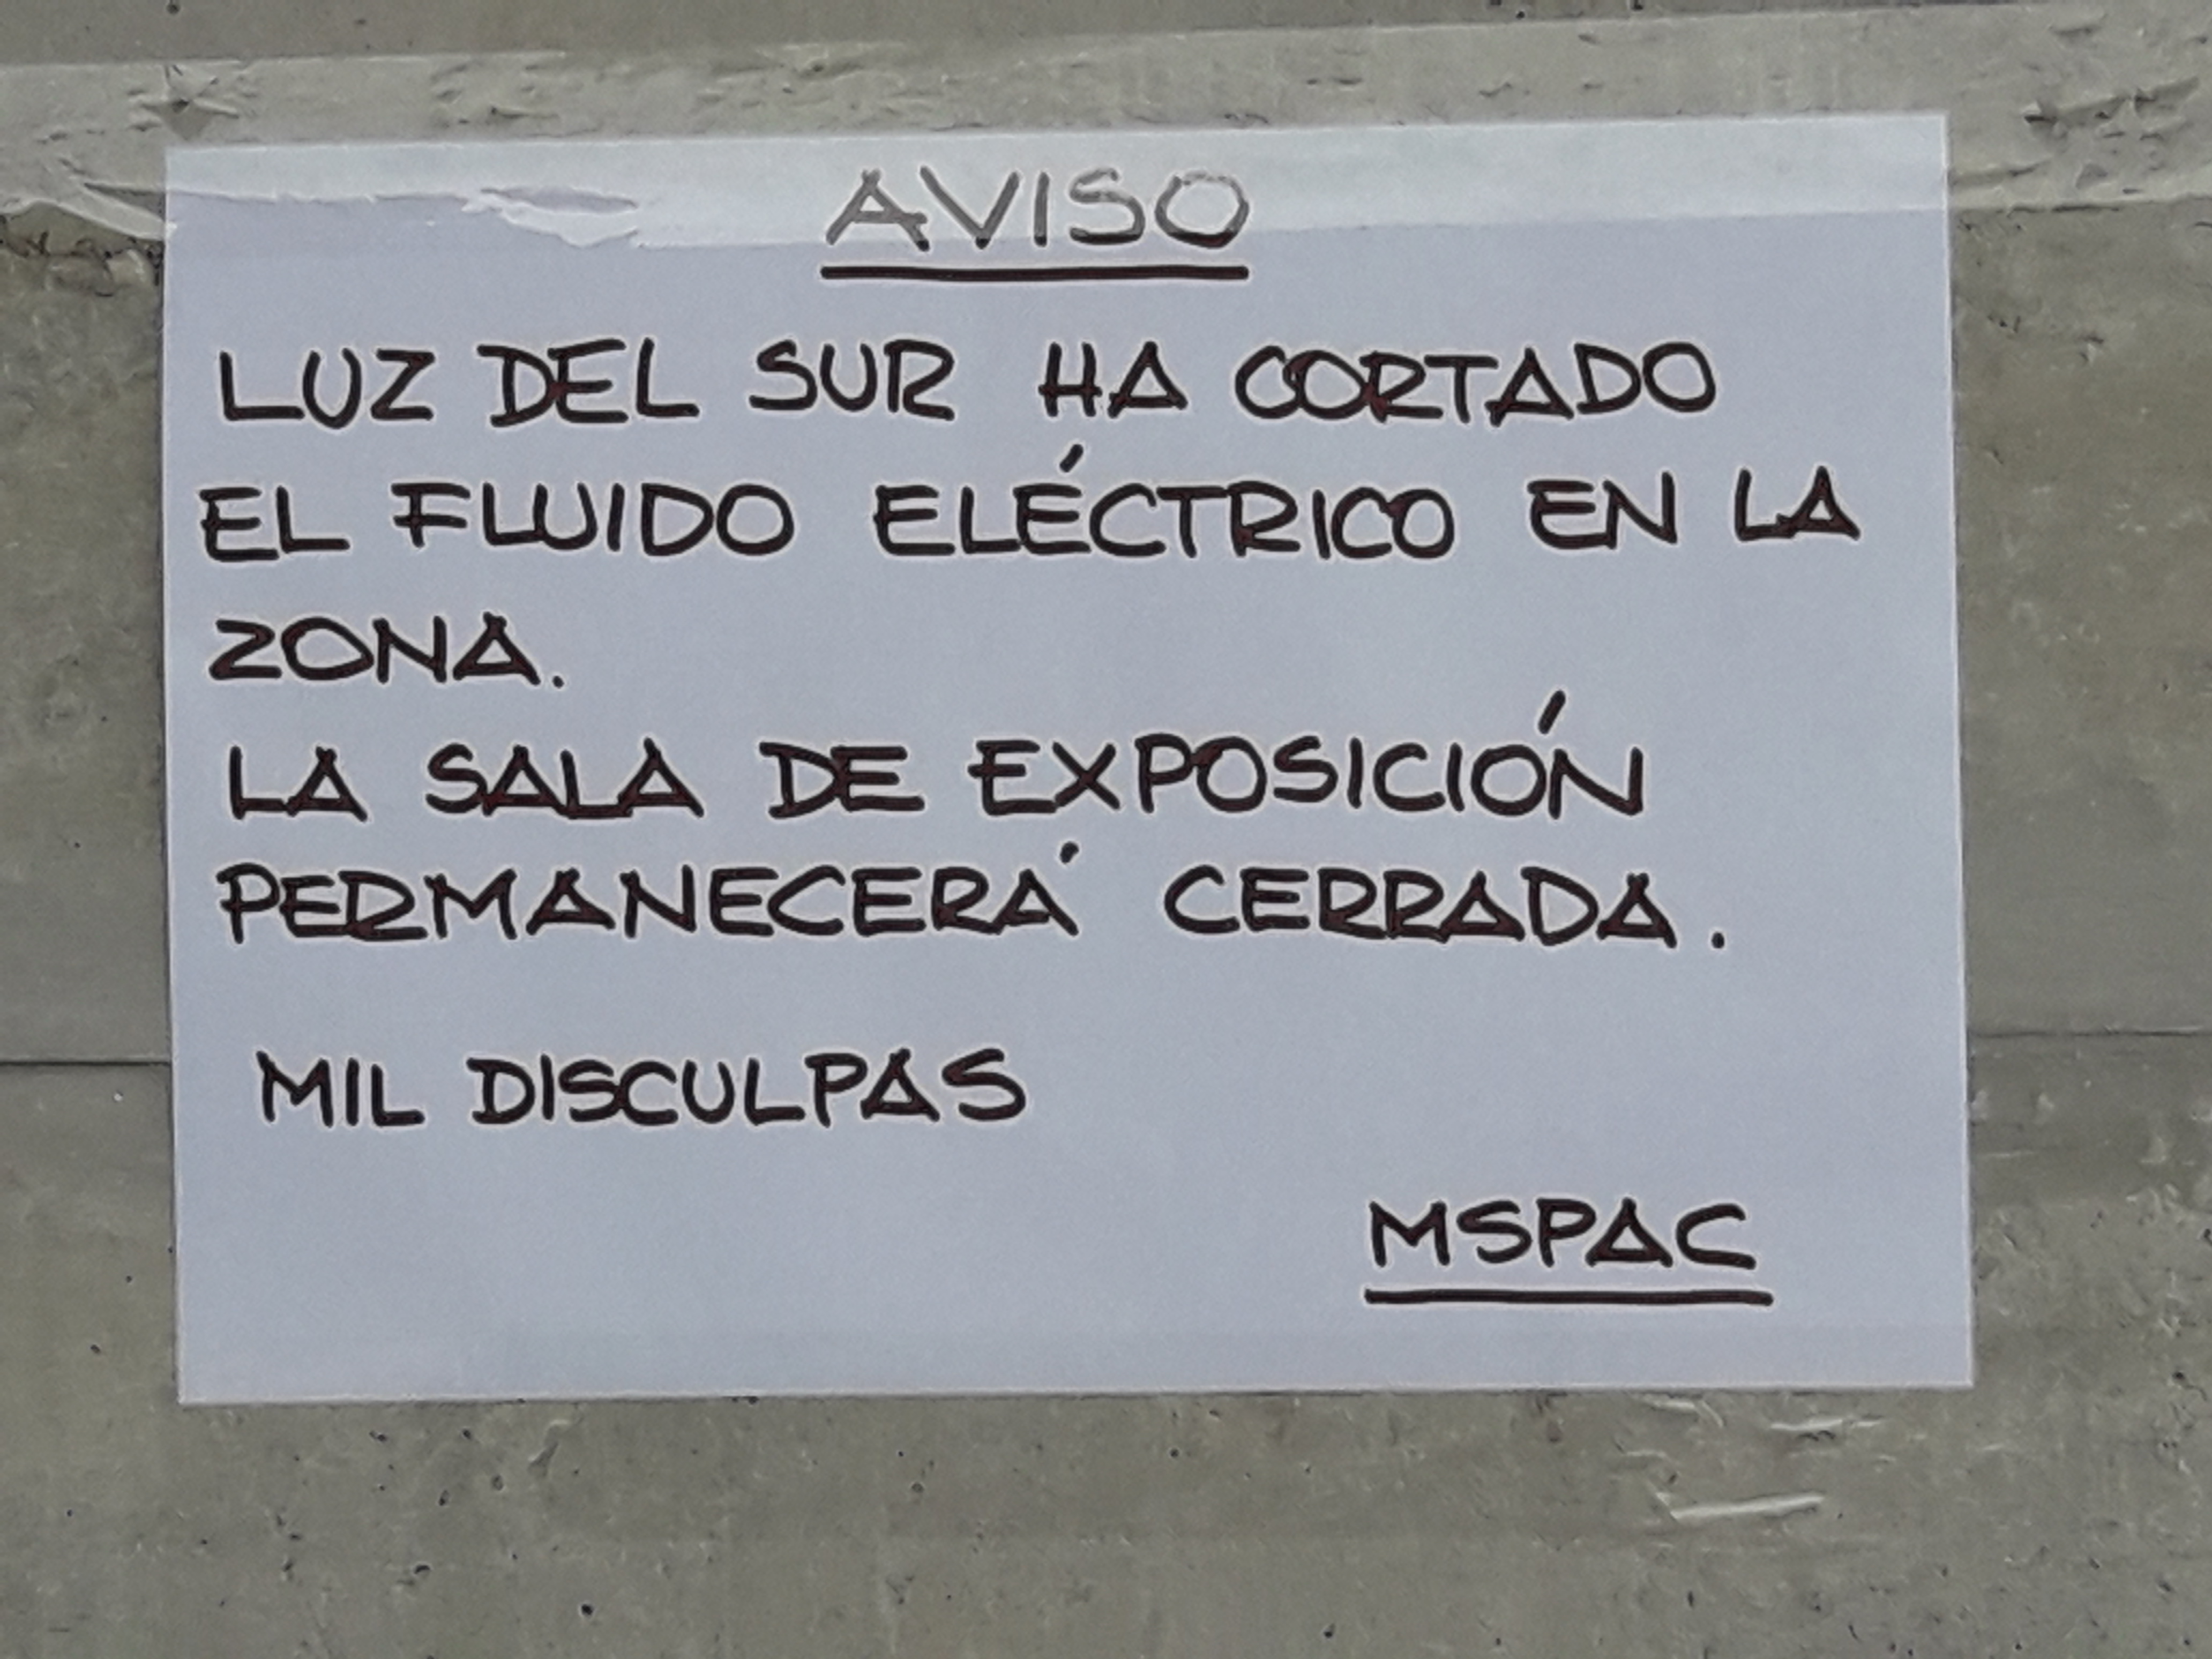 AVISO
LUZ DEL SUR HA CORTADO
EL FLUIDO ELÉCTRICO EN LA
ZONA.
LA SALA DE EXPOSICIÓN
PERMANECERÁ CERRADA.
MIL DISCULPAS
MSPAC